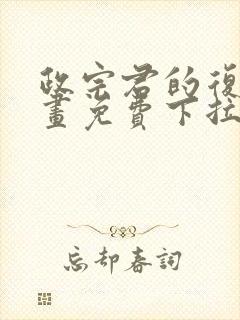 政宗君的復
畫免費下拉
忘却春詞